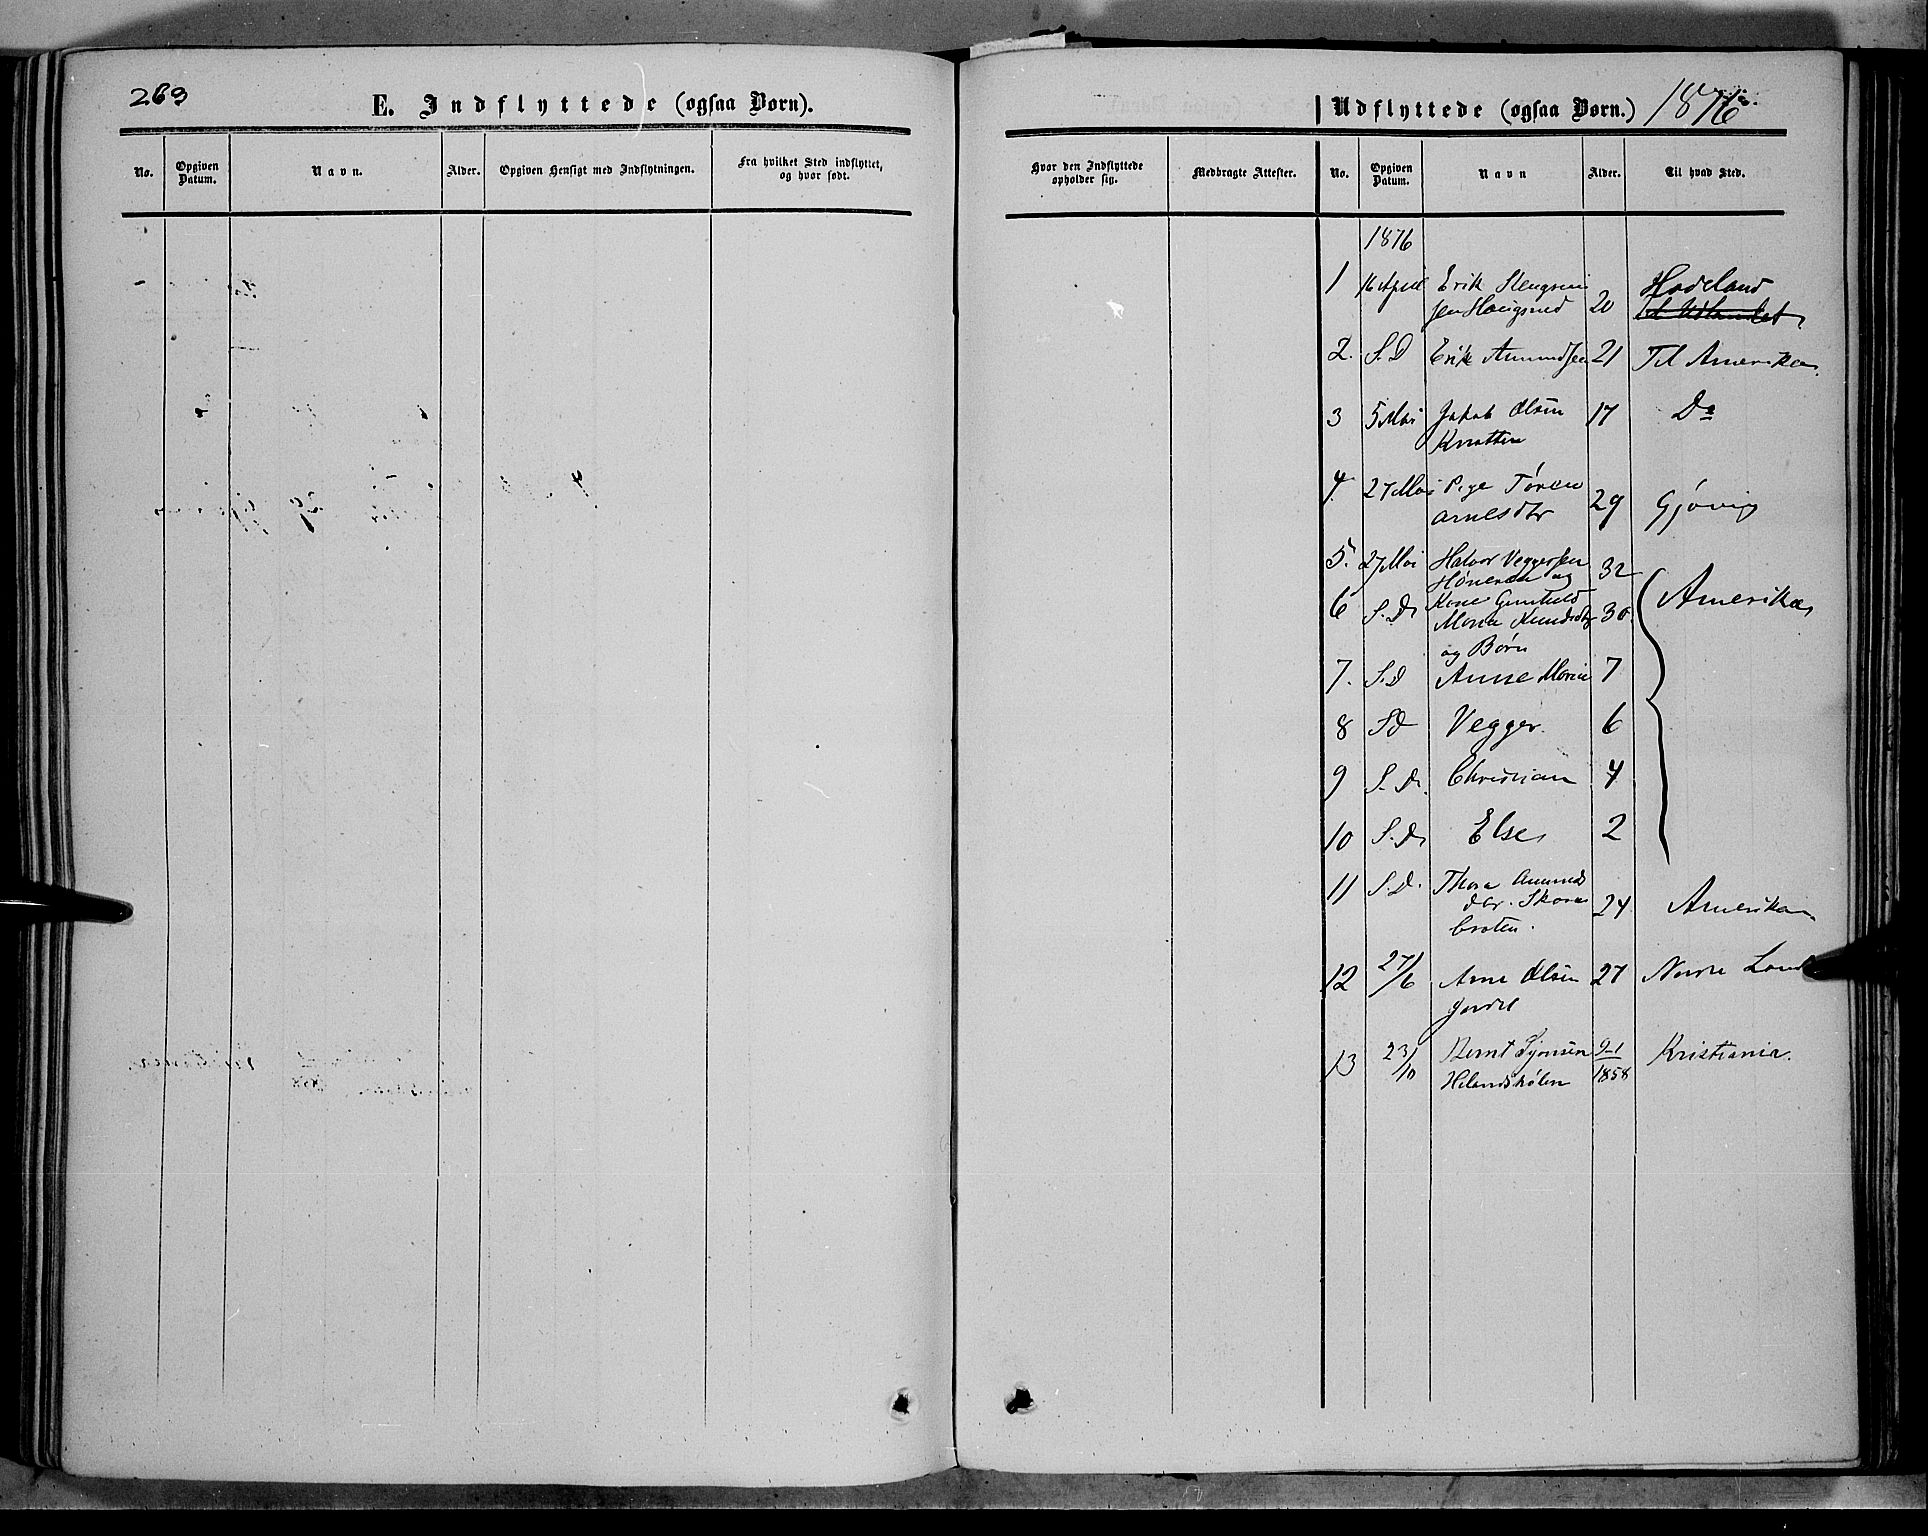 263
E. Indflyttede (ogsaa Børn).
No.
Opgiven Datum.
Navn.
Alder.
Opgiven Hensigt med Indflytningen.
Fra hvilket Sted indflyttet, og hvor født.
Udflyttede (ogsaa Børn.) 1876
Hvor den Indflyttede opholder sig.
Medbragte Attester.
No.
Opgiven Datum.
Navn
Alder.
Til hvad Sted.
1876
1 16 April Erik 20 Hadeland
til Udlandet
2. S.D Erik Amundsen 21 Til Amerika
3 5 Mai Jakob Olsen 17 Do
Knatten
4 27 Mai Pige Tören 29 Gjøvig
Arnesdtr
5. 27 Mai Halvor Veggersen 32
og
6 S.D Kone Gunhild Amerika
Maria Knudsdtr 30
og Børn
7. S.D Anne Maria 7
8 SD Vegger. 6
9 S.D. Christian 4
10 S.D Else 2
11 S.D. Thora Amunds 24 Amerika
dtr. Skaran
broten.
12 27/6 Arne Olsen 27 Nordre Land
13 23/10 Bernt 9-1 1858 Kristiania.